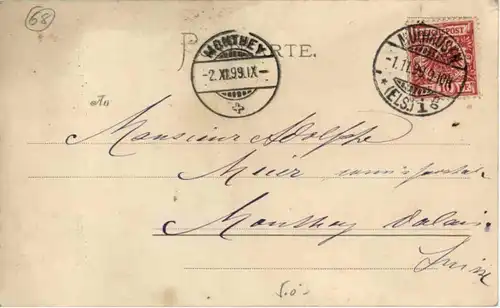 68
POSTKARTE.
MONTHEY
-2.XI.99.IX-
MÜLHAUSEN
-1.11.99.9-10N.
* (ELS.) 1 g
An
Monsieur Adolphe
Meier
Monthey Valais
Suisse
5.0